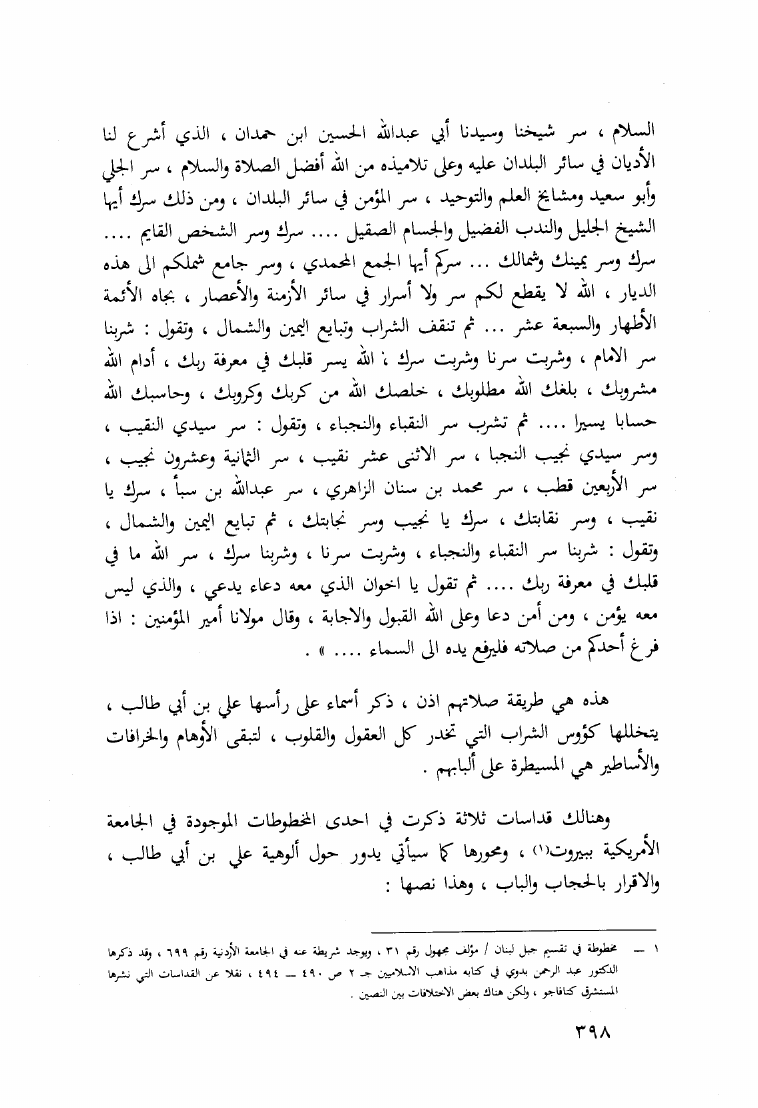 السلام ، سر شيخنا وسيدنا أبي عبدالله الحسين ابن حمدان ، الذي أشرع لنا
الأديان في سائر البلدان عليه وعلى تلاميذه من الله أفضل الصلاة والسلام ، سر الجلي
وأبو سعيد ومشايخ العلم والتوحيد ، سر المؤمن في سائر البلدان ، ومن ذلك سرك أيها
الشيخ الجليل والندب الفضيل والجسام الصقيل .... سرك وسر الشخص القايم ....
سرك وسر يمينك وشمالك ... سركم أيها الجمع المحمدي ، وسر جامع شملكم الى هذه
الديار ، الله لا يقطع لكم سر ولا أسرار في سائر الأزمنة والأعصار ، بجاه الأئمة
الأطهار والسبعة عشر ... ثم تنقف الشراب وتبايع اليمين والشمال ، وتقول : شربنا
سر الامام ، وشربت سرنا وشربت سرك ، الله يسر قلبك في معرفة ربك ، أدام الله
مشروبك ، بلغك الله مطلوبك ، خلصك الله من كربك وكروبك ، وحاسبك الله
حسابا يسيرا .... ثم تشرب سر النقباء والنجباء ، وتقول : سر سيدي النقيب ،
وسر سيدي نجيب النجبا ، سر الاثنى عشر نقيب ، سر الثمانية وعشرون نجيب ،
سر الأربعين قطب ، سر محمد بن سنان الزاهري ، سر عبدالله بن سبأ ، سرك يا
نقيب ، وسر نقابتك ، سرك يا نجيب وسر نجابتك ، ثم تبايع اليمين والشمال ،
وتقول : شربنا سر النقباء والنجباء ، وشربت سرنا ، وشربنا سرك ، سر الله ما في
قلبك في معرفة ربك .... ثم تقول يا اخوان الذي معه دعاء يدعي ، والذي ليس
معه يؤمن ، ومن أمن دعا وعلى الله القبول والاجابة ، وقال مولانا أمير المؤمنين : اذا
فرغ أحدكم من صلاته فليرفع يده الى السماء .... » .
هذه هي طريقة صلاتهم اذن ، ذكر أسماء على رأسها علي بن أبي طالب ،
يتخللها كؤوس الشراب التي تخدر كل العقول والقلوب ، لتبقى الأوهام والخرافات
والأساطير هي المسيطرة على ألبابهم .
وهنالك قداسات ثلاثة ذكرت في احدى المخطوطات الموجودة في الجامعة
الأمريكية ببيروت(١) ، ومحورها كما سيأتي يدور حول ألوهية علي بن أبي طالب ،
والاقرار بالحجاب والباب ، وهذا نصها :
١ — مخطوطة في تقسيم جبل لبنان / مؤلف مجهول رقم ٣١ ، ويوجد شريطة عنه في الجامعة الأردنية رقم ٦٩٩ ، وقد ذكرها
الدكتور عبد الرحمن بدوي في كتابه مذاهب الاسلاميين جـ ٢ ص ٤٩٠ — ٤٩٤ ، نقلا عن القداسات التي نشرها
المستشرق كتافاجو ، ولكن هناك بعض الاختلافات بين النصين .
٣٩٨